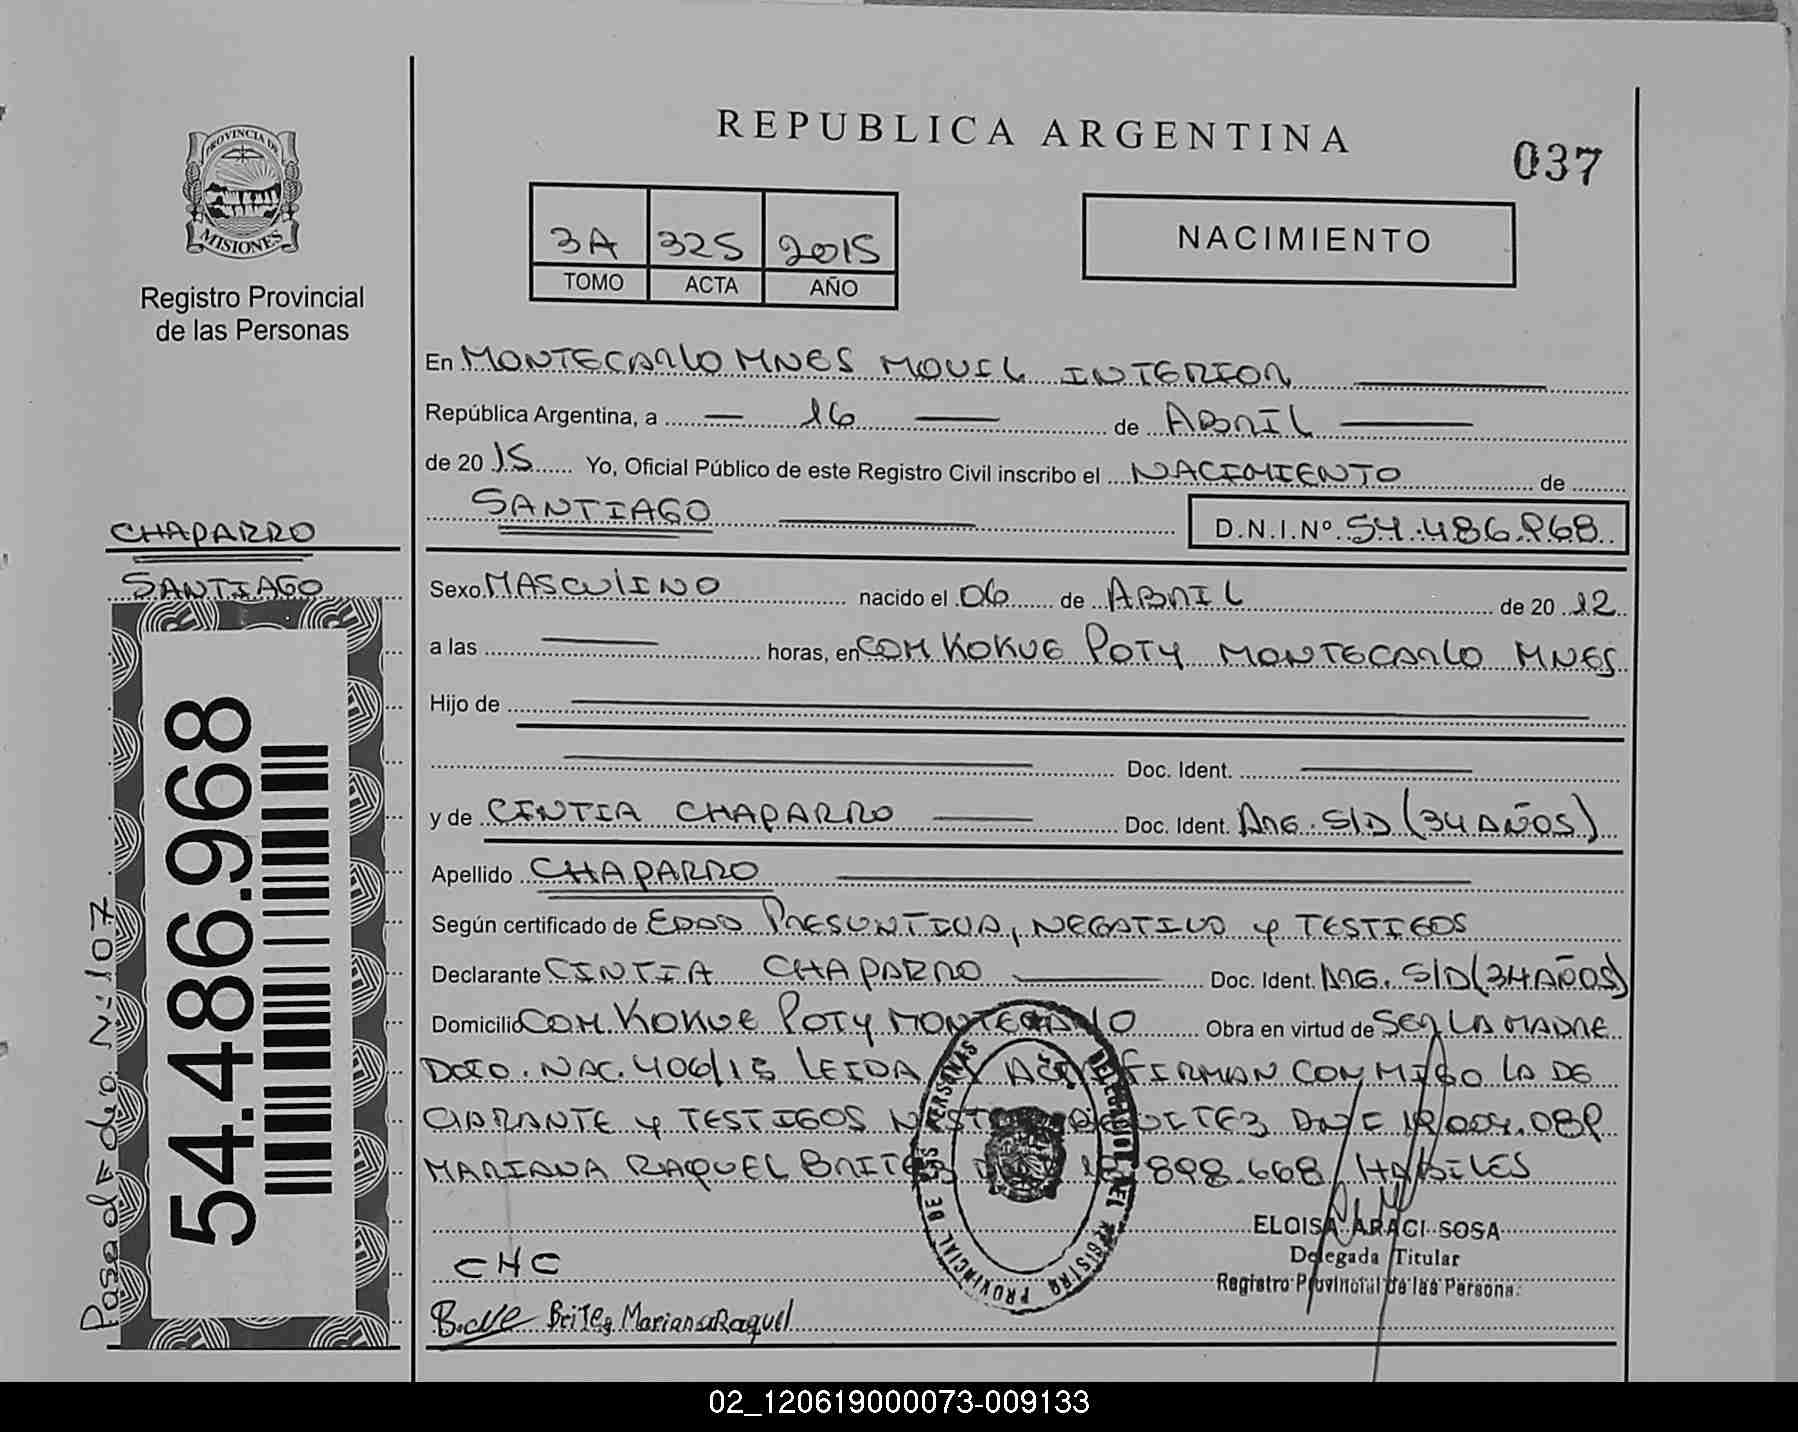 REPUBLICA ARGENTINA
037
PROVINCIA DE
MISIONES
Registro Provincial
de las Personas
3A 325 2015
TOMO ACTA AÑO
NACIMIENTO
En MONTECARLO MNES MOVIL INTERIOR
República Argentina, a 16 de ABRIL
de 2015 Yo, Oficial Público de este Registro Civil inscribo el NACIMIENTO de
SANTIAGO D.N.I.Nº 54.486.968
CHAPARRO
SANTIAGO
Sexo MASCULINO nacido el 06 de ABRIL de 20 12
a las horas, en COM KOKUE POTY MONTECARLO MNES
Hijo de
Doc. Ident.
y de CINTIA CHAPARRO Doc. Ident. ARG. S/D (34 AÑOS)
Apellido CHAPARRO
Según certificado de EDAD PRESUNTIVA, NEGATIVO y TESTIGOS
Declarante CINTIA CHAPARRO Doc. Ident. ARG. S/D (34 AÑOS)
Domicilio COM. KOKUE POTY MONTECARLO Obra en virtud de SER LA MADRE
DCTO. NAC. 406/15 LEIDA ACTA FIRMAN CONMIGO LA DE
CLARANTE y TESTIGOS
MARIANA RAQUEL BRITEZ 898.668 HABILES
ELOISA ARACI SOSA
Delegada Titular
Registro Provincial de las Persona
CHC
Britez Mariana Raquel
REGISTRO PROVINCIAL DE LAS PERSONAS
54.486.968
Pasad
Nº 107
02_120619000073-009133